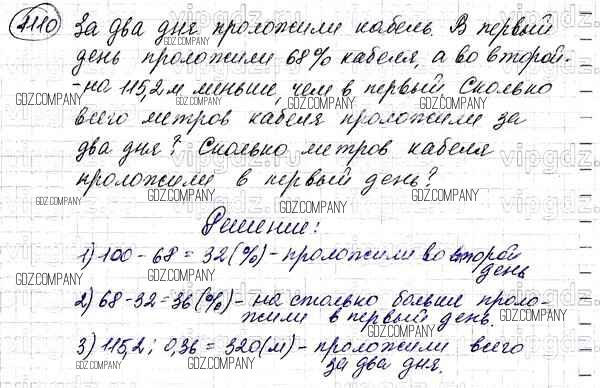 1110 За два дня проложили кабель. В первый
день проложили 68% кабеля, а во второй -
- на 115,2 м меньше, чем в первый. Сколько
всего метров кабеля проложили за
два дня? Сколько метров кабеля
проложили в первый день?
Решение:
1) 100 - 68 = 32 (%) - проложили во второй
день
2) 68 - 32 = 36 (%) - на столько больше проло-
жили в первый день.
3) 115,2 : 0,36 = 320 (м) - проложили всего
за два дня.